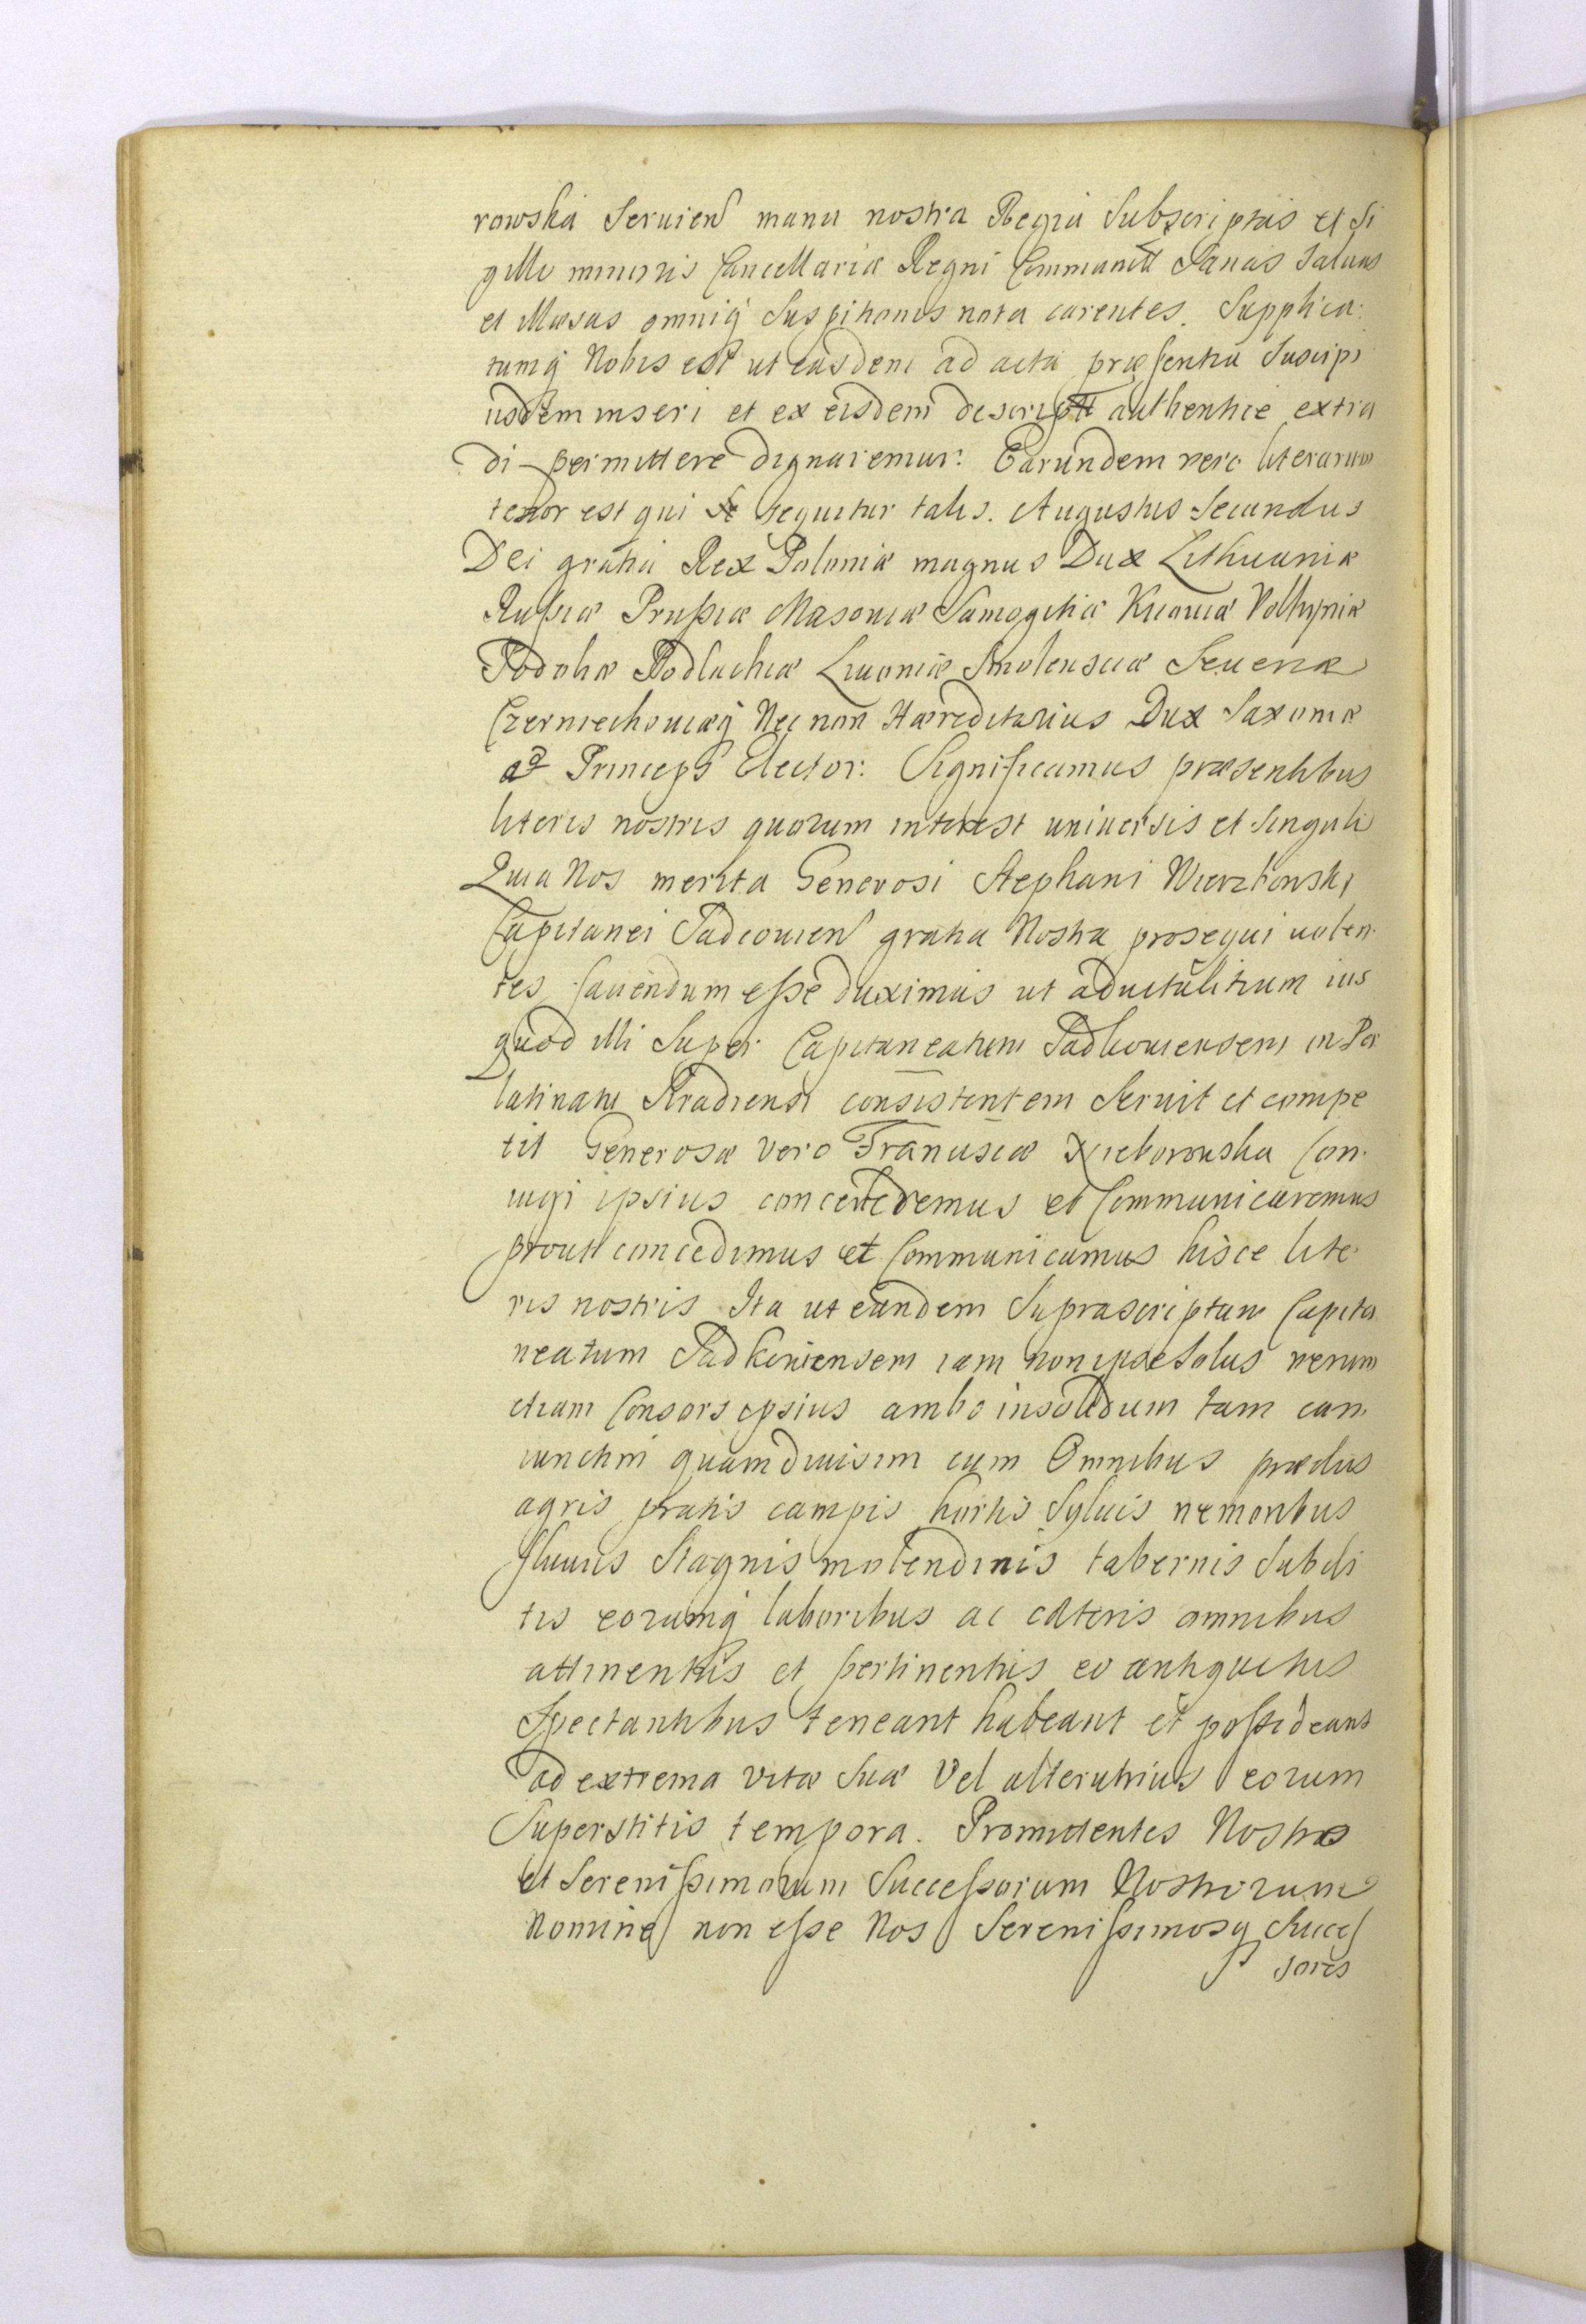 rowska Seruien manu nostra Regia Subscriptas et Si
gillo minoris Cancellariæ Regni Communitt Sanas Saluas
et illæsas omniq̃ Suspitionis nota carentes. Supplica:
tumq̃ Nobis est ut easdem ad acta præsentia Suscipi
iisdem inseri et ex eisdem descriptt authentice extra
di permittere dignaremur: Earundem vero literarum
tenor est qui Se Sequitur talis. Augustus Secundus
Dei gratia Rex Poloniæ magnus Dux Lithuaniæ
Russiæ Prussiæ Masoviæ Samogitiæ Kiioviæ Volhyniæ
Podoliæ Podlachiæ Livoniæ Smolensciæ Seueriæ
Czerniechoviæq̃ Nec non Hæreditarius Dux Saxoniæ
ac Princeps Elector: Significamus præsentibus
literis nostris quorum interest universis et Singulis
Quia Nos merita Generosi Stephani Wierzbowski
Capitanei Tadcouien gratia Nostra prosequi uolen
tes faciendum esse duximus ut aduitalitium ius
quod illi Super Capitaneatum Tadkouiensem in Pa
latinatu Siradiensi consistentem Seruit et compe
tit Generosæ vero Franciscæ Nieborowska Con
iugi ipsius concederemus et Communicaremus
prout concedimus et Communicamus hisce lite
ris nostris Ita ut eundem Suprascriptum Capita
neatum Tadkouiensem iam non ipse Solus verum
etiam Consors ipsius ambo insolidum tam con
iunctim quam divisim cum Omnibus prædiis
agris pratis campis hortis Syluis nemoribus
fluuiis Stagnis molendinis tabernis Subdi
tis eorumq̃ laboribus ac cæteris omnibus
attinentiis et pertinentiis eo antiquitus
Spectantibus teneant habeant et possideant
ad extrema vitæ Suæ Vel alterutrius eorum
Superstitis tempora. Promittentes Nostro
et Serenissimorum Successorum Nostrorum
Nomine non esse Nos Serenissimosq̃ Succes
sores